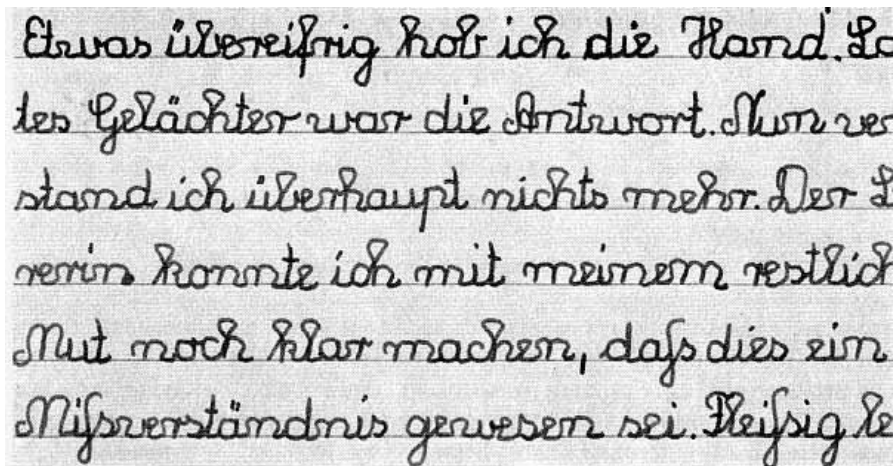 Etwas übereifrig hob ich die Hand. La
tes Gelächter war die Antwort. Nun ver
stand ich überhaupt nichts mehr. Der L
rerin konnte ich mit meinem restlich
Mut noch klar machen, daß dies ein
Mißverständnis gewesen sei. Fleißig le